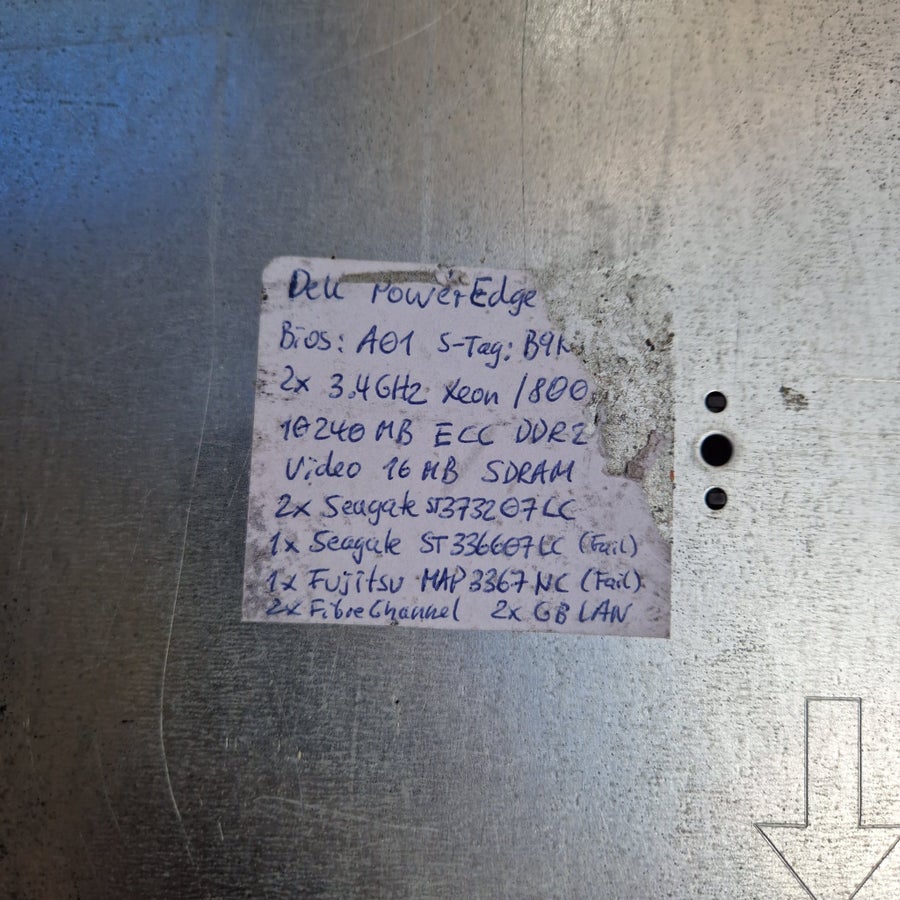 Dell PowerEdge
Bios: A01 S-Tag: B9
2x 3.4GHz Xeon /800
10240 MB ECC DDR2
Video 16 MB SDRAM
2x Seagate ST373207LC
1x Seagate ST336607LC (Fail)
1x Fujitsu MAP3367NC (Fail)
2x FibreChannel 2x GB LAN